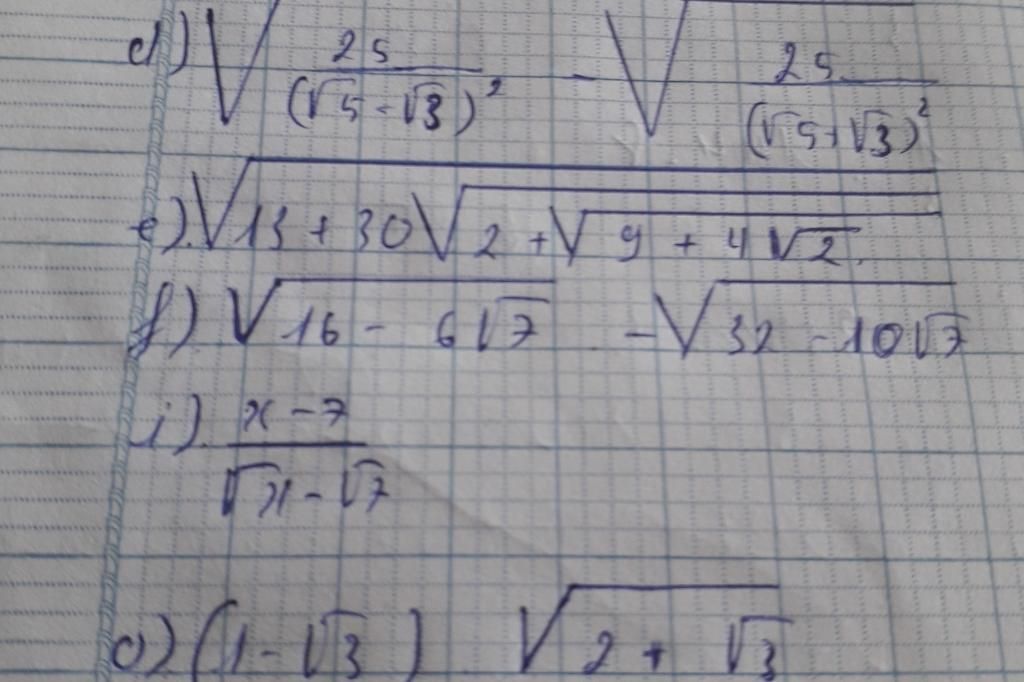 d) √(25/(√5-√3)²) - √(25/(√5+√3)²)
e) √(13 + 30√(2 + √(9 + 4√2)))
f) √(16 - 6√7) - √(32 - 10√7)
i) (x-7)/(√x - √7)
o) (1-√3) √(2 + √3)